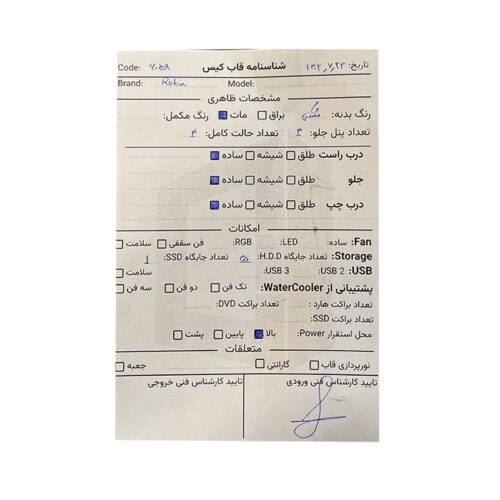 تاریخ: ۱۴۰۲/۷/۲۳ شناسنامه قاب کیس Code:
Brand: Robin Model:
مشخصات ظاهری
رنگ بدنه: مشکی براق مات رنگ مکمل:
تعداد پنل جلو: ۴ تعداد حالت کامل: ۴
درب راست طلق شیشه ساده
جلو طلق شیشه ساده
درب چپ طلق شیشه ساده
امکانات
Fan: ساده: LED: RGB: فن سقفی سلامت
Storage: تعداد جایگاه H.D.D: ۵ تعداد جایگاه SSD: ۱
USB: USB 2: USB 3 سلامت
پشتیبانی از WaterCooler: تک فن دو فن سه فن
تعداد براکت هارد: تعداد براکت DVD:
تعداد براکت SSD:
محل استقرار Power: بالا پایین پشت
متعلقات
نورپردازی قاب گارانتی جعبه
تایید کارشناس فنی ورودی تایید کارشناس فنی خروجی